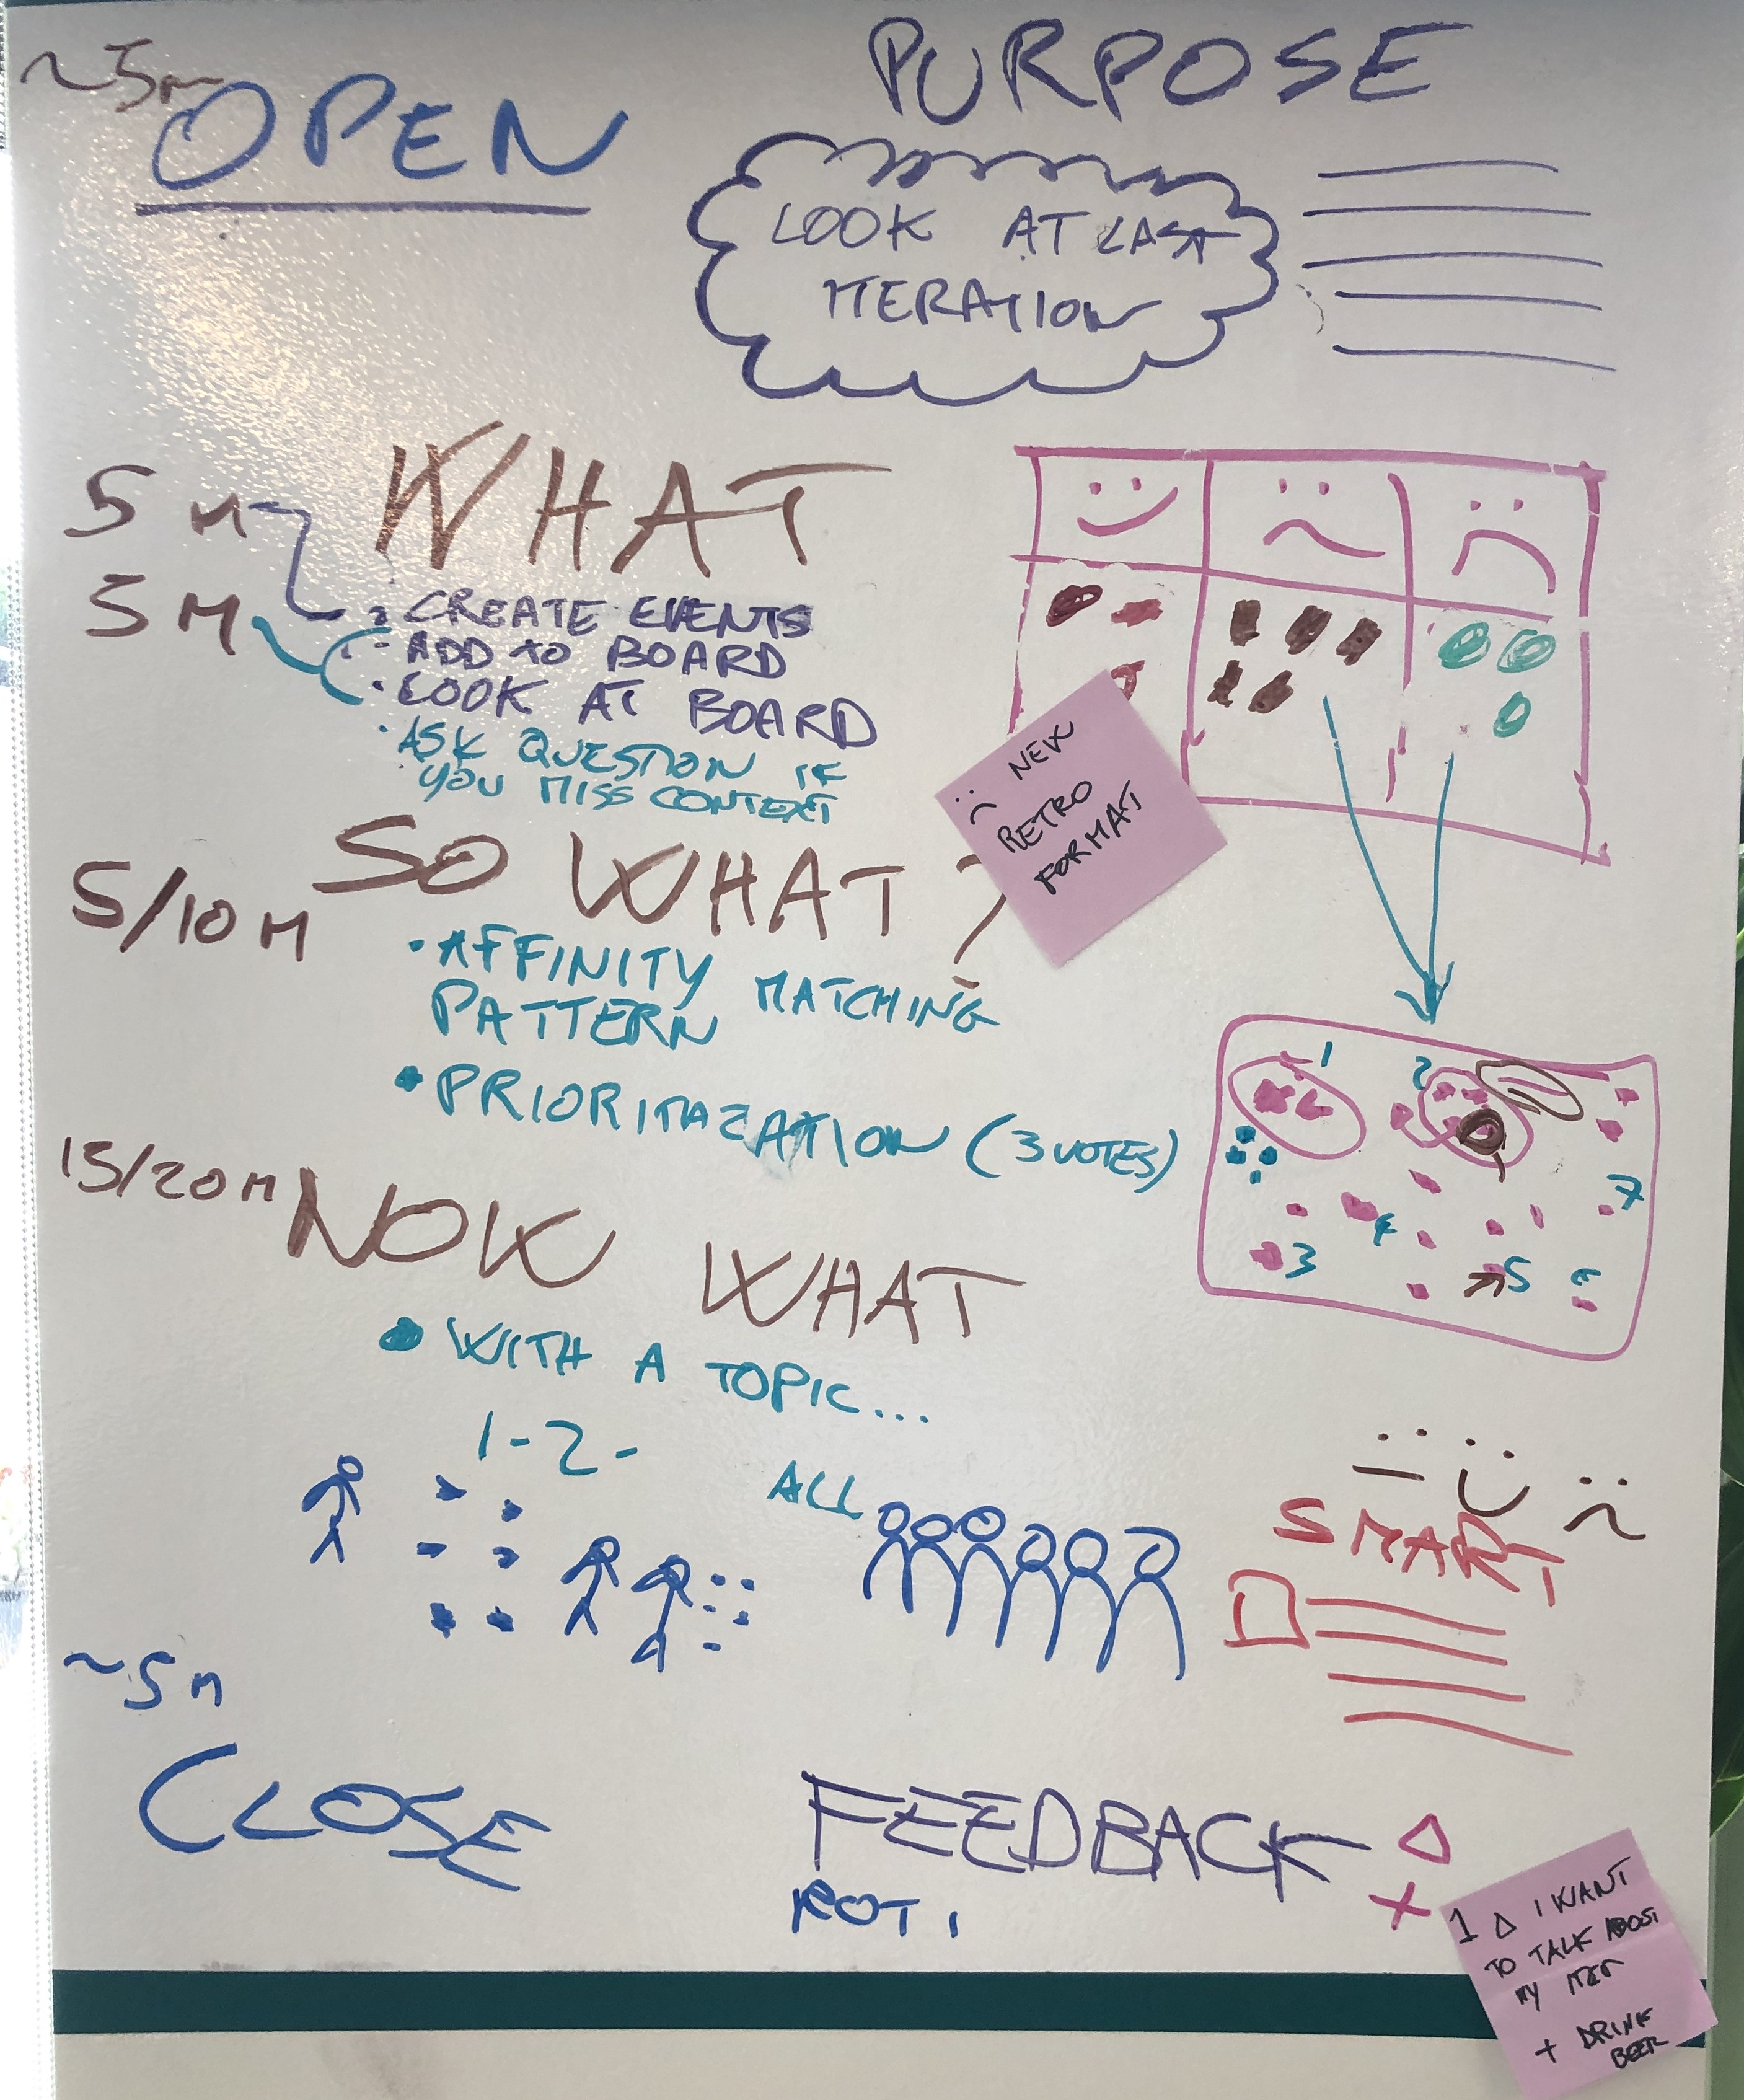 ~5m
OPEN
PURPOSE
LOOK AT LAST
ITERATION
5 M
WHAT
5 M
CREATE EVENTS
- ADD to BOARD
· LOOK AT BOARD
· ASK QUESTION IF
YOU MISS CONTEXT
:( NEW
RETRO
FORMAT
5/10 M
SO WHAT ?
· AFFINITY MATCHING
PATTERN
• PRIORITAZATION (3 VOTES)
1
2
7
4
3
5
6
15/20 M
NOW WHAT
• WITH A TOPIC...
1-2-
ALL
SMART
~5m
CLOSE
FEEDBACK Δ
+
ROTI
1 Δ I WANT
TO TALK ABOUT
MY
+ DRINK
BEER